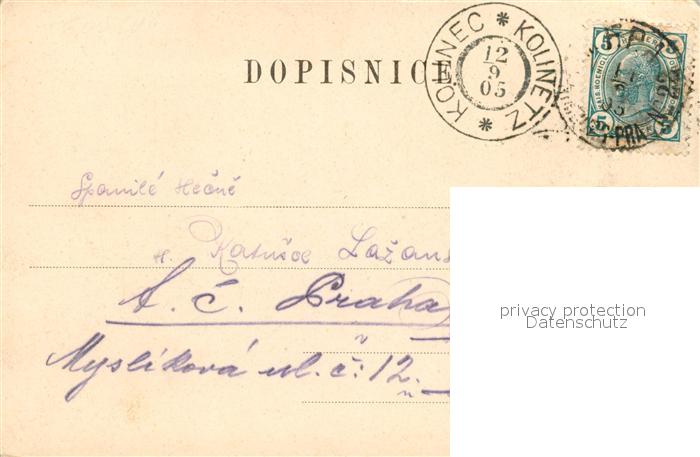 DOPISNICE
KOLINEC * KOLINETZ *
12
9
05
5 5
5 5
Spanilé slečně
Katušce Lažans
A. č. Praha
Myslíková ul. č: 12.
privacy protection
Datenschutz